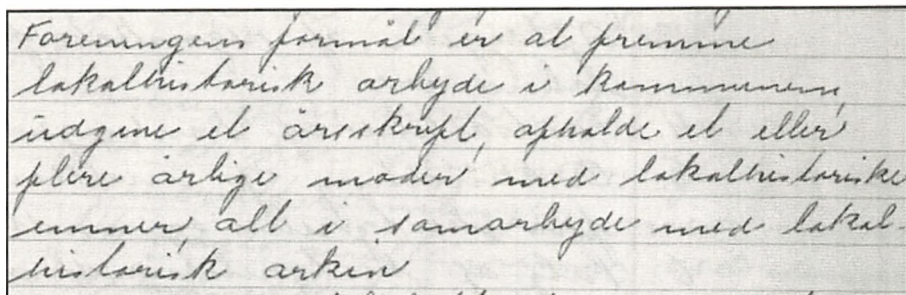 Foreningens formål er at fremme
lokalhistorisk arbejde i kommunen,
udgive et årsskrift, afholde et eller
flere årlige møder med lokalhistoriske
emner, alt i samarbejde med lokal-
historisk arkiv